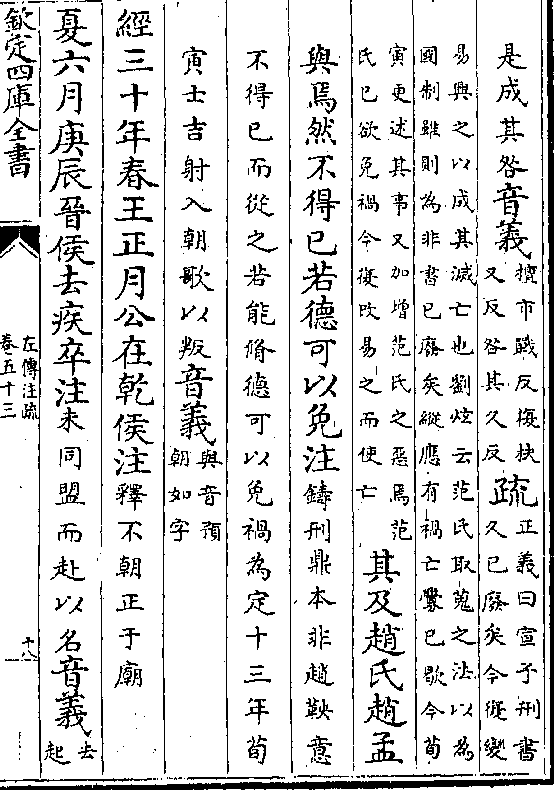 是成其咎音義擅市戰反復扶
又反咎其九反疏正義曰宣子刑書
久已廢矣今復變
易興之以成其滅亡也劉炫云范氏取蒐之法以為
國制雖則為非書已廢矣縱應有禍亡釁已歇今荀
寅更述其事又加增范氏之惡焉范
氏已欲免禍今復改易之而使亡其及趙氏趙孟
與焉然不得已若德可以免注鑄刑鼎本非趙鞅意
不得已而從之若能脩德可以免禍為定十三年荀
寅士吉射入朝歌以叛音義與音預
朝如字
經三十年春王正月公在乾侯注釋不朝正于廟
夏六月庚辰晉侯去疾卒注未同盟而赴以名音義去
起
欽定四庫全書
左傳注疏
卷五十三
十八